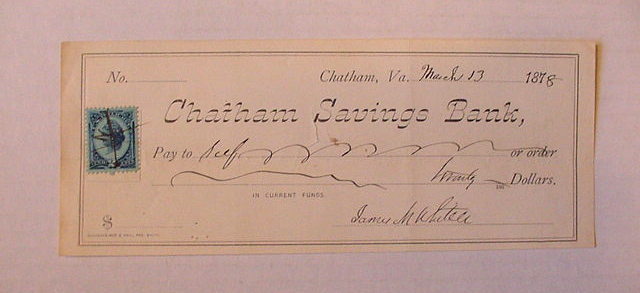 No. Chatham, Va. March 13 1878
Chatham Savings Bank,
Pay to Self or order
Twenty 100 Dollars.
IN CURRENT FUNDS.
$